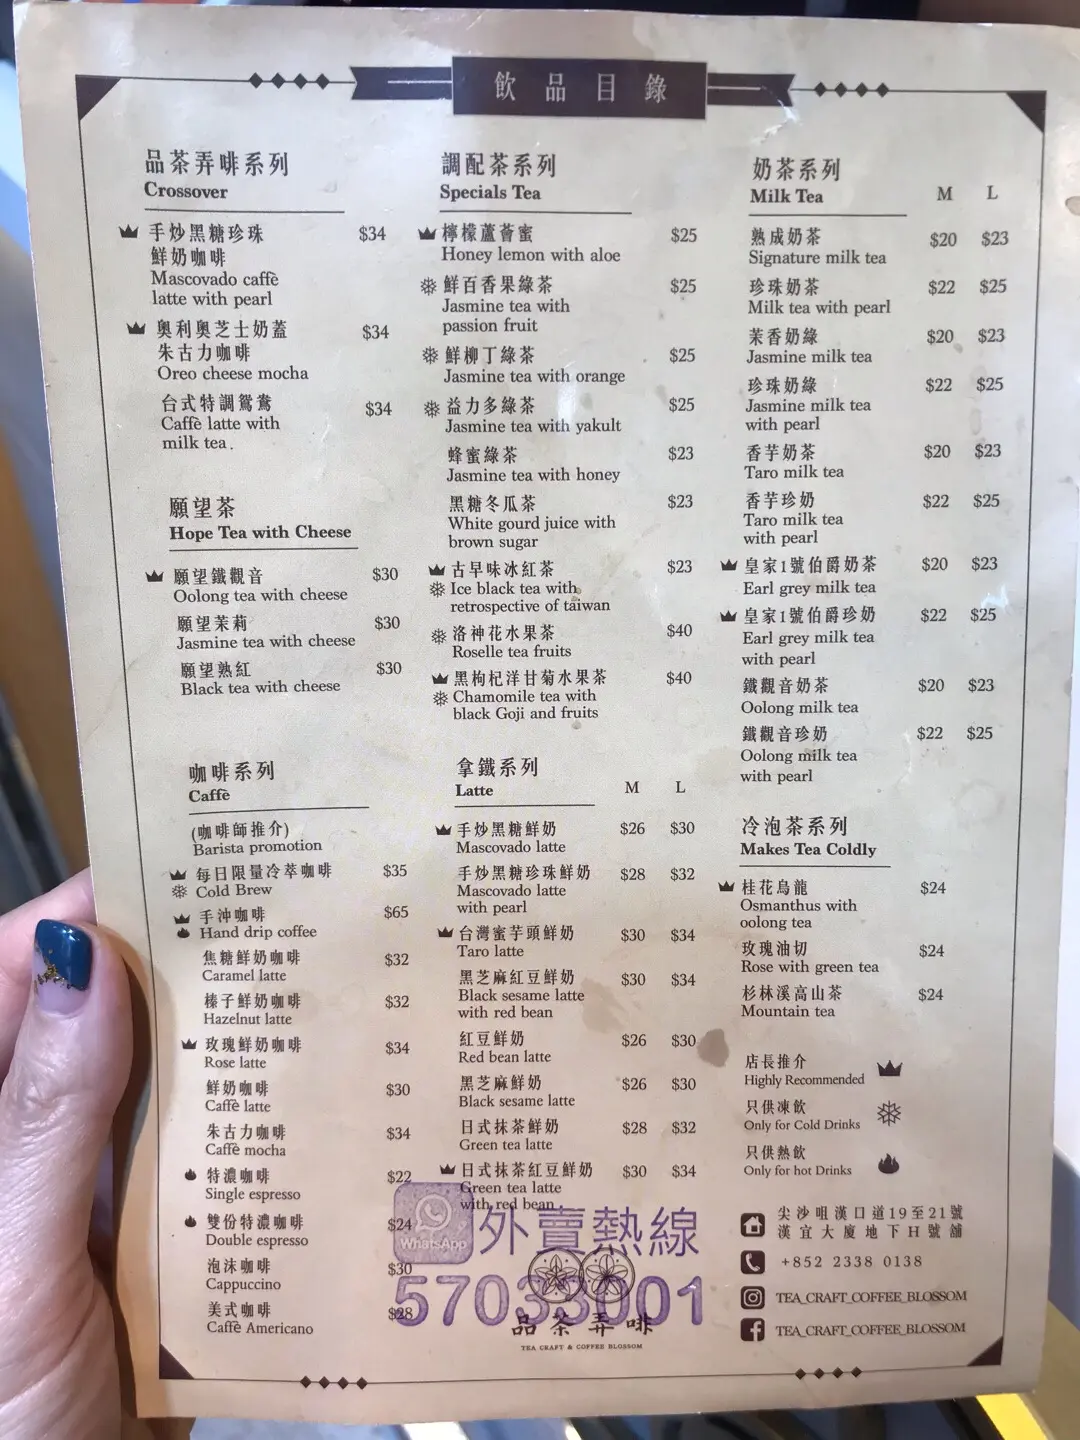 飲品目錄
品茶弄啡系列
Crossover
手炒黑糖珍珠 $34
鮮奶咖啡
Mascovado caffè
latte with pearl
奧利奧芝士奶蓋 $34
朱古力咖啡
Oreo cheese mocha
台式特調鴛鴦 $34
Caffè latte with
milk tea.
願望茶
Hope Tea with Cheese
願望鐵觀音 $30
Oolong tea with cheese
願望茉莉 $30
Jasmine tea with cheese
願望熟紅 $30
Black tea with cheese
咖啡系列
Caffè
(咖啡師推介)
Barista promotion
每日限量冷萃咖啡 $35
Cold Brew
手沖咖啡 $65
Hand drip coffee
焦糖鮮奶咖啡 $32
Caramel latte
榛子鮮奶咖啡 $32
Hazelnut latte
玫瑰鮮奶咖啡 $34
Rose latte
鮮奶咖啡 $30
Caffè latte
朱古力咖啡 $34
Caffè mocha
特濃咖啡 $22
Single espresso
雙份特濃咖啡 $24
Double espresso
泡沫咖啡 $30
Cappuccino
美式咖啡 $28
Caffè Americano
調配茶系列
Specials Tea
檸檬蘆薈蜜 $25
Honey lemon with aloe
鮮百香果綠茶 $25
Jasmine tea with
passion fruit
鮮柳丁綠茶 $25
Jasmine tea with orange
益力多綠茶 $25
Jasmine tea with yakult
蜂蜜綠茶 $23
Jasmine tea with honey
黑糖冬瓜茶 $23
White gourd juice with
brown sugar
古早味冰紅茶 $23
Ice black tea with
retrospective of taiwan
洛神花水果茶 $40
Roselle tea fruits
黑枸杞洋甘菊水果茶 $40
Chamomile tea with
black Goji and fruits
拿鐵系列
Latte M L
手炒黑糖鮮奶 $26 $30
Mascovado latte
手炒黑糖珍珠鮮奶 $28 $32
Mascovado latte
with pearl
台灣蜜芋頭鮮奶 $30 $34
Taro latte
黑芝麻紅豆鮮奶 $30 $34
Black sesame latte
with red bean
紅豆鮮奶 $26 $30
Red bean latte
黑芝麻鮮奶 $26 $30
Black sesame latte
日式抹茶鮮奶 $28 $32
Green tea latte
日式抹茶紅豆鮮奶 $30 $34
Green tea latte
with red bean
WhatsApp 外賣熱線
57033001
品茶弄啡
TEA CRAFT & COFFEE BLOSSOM
奶茶系列
Milk Tea M L
熟成奶茶 $20 $23
Signature milk tea
珍珠奶茶 $22 $25
Milk tea with pearl
茉香奶綠 $20 $23
Jasmine milk tea
珍珠奶綠 $22 $25
Jasmine milk tea
with pearl
香芋奶茶 $20 $23
Taro milk tea
香芋珍奶 $22 $25
Taro milk tea
with pearl
皇家1號伯爵奶茶 $20 $23
Earl grey milk tea
皇家1號伯爵珍奶 $22 $25
Earl grey milk tea
with pearl
鐵觀音奶茶 $20 $23
Oolong milk tea
鐵觀音珍奶 $22 $25
Oolong milk tea
with pearl
冷泡茶系列
Makes Tea Coldly
桂花烏龍 $24
Osmanthus with
oolong tea
玫瑰油切 $24
Rose with green tea
杉林溪高山茶 $24
Mountain tea
店長推介
Highly Recommended
只供凍飲
Only for Cold Drinks
只供熱飲
Only for hot Drinks
尖沙咀漢口道19至21號
漢宜大廈地下H號舖
+852 2338 0138
TEA_CRAFT_COFFEE_BLOSSOM
TEA_CRAFT_COFFEE_BLOSSOM